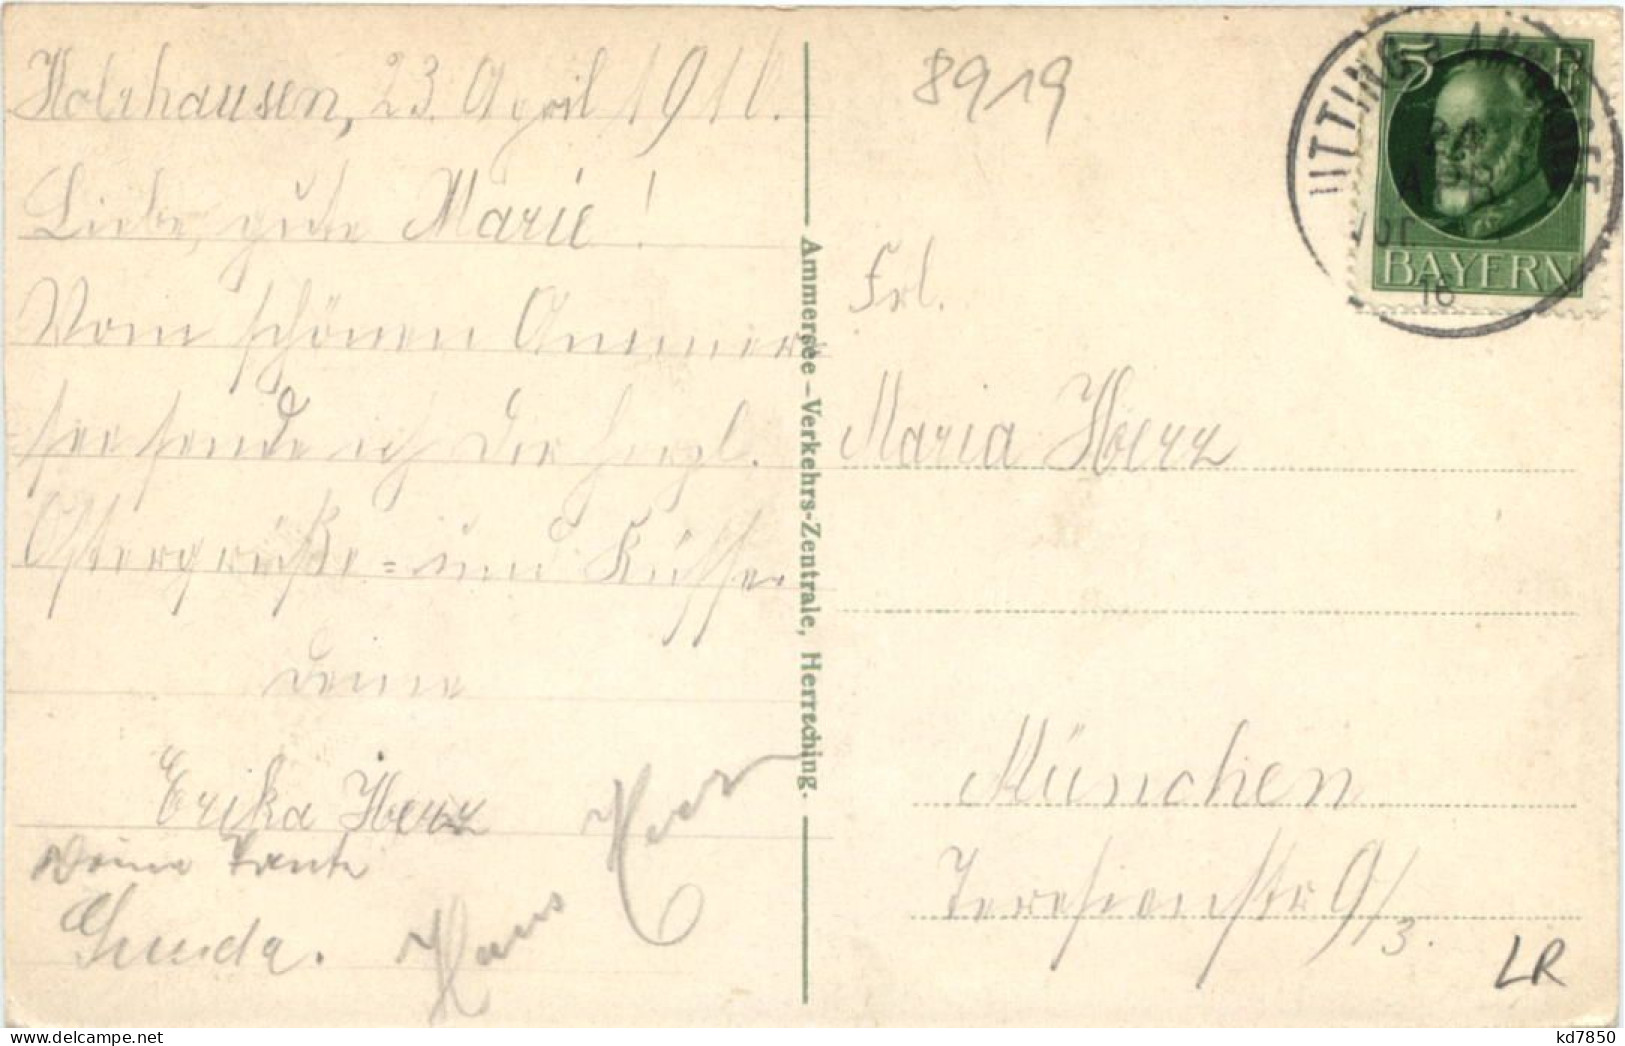 Holzhausen, 23. April 1916.
Liebe, gute Marie!
Vom schönen Ammer-
see sende ich Dir herzl.
Ostergrüße = und Küsse
Deine
Erika Herz
Deine Tante
Gunda.
Hans Herz
Ammersee-Verkehrs-Zentrale, Herrsching.
8919
5 P
BAYERN
UTTING a. AMMERSEE
24
APR
Vor.
16
Frl.
Maria Herz
München
Teresienstr 9/3.
LR
kd7850